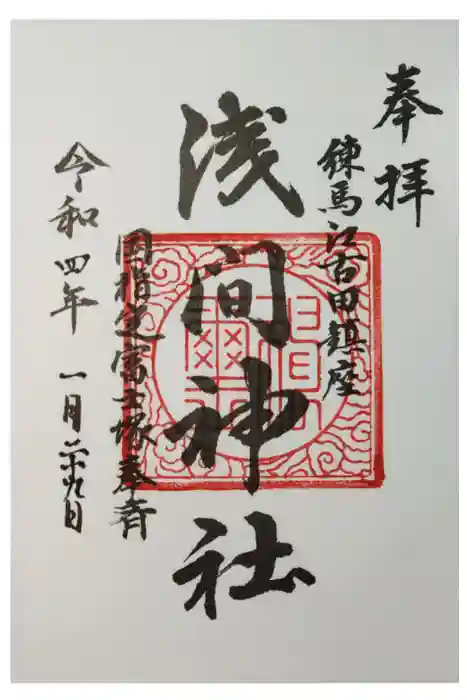 奉拝
練馬江古田鎮座
浅間神社
国指定富士塚奉斉
令和四年 一月二十九日